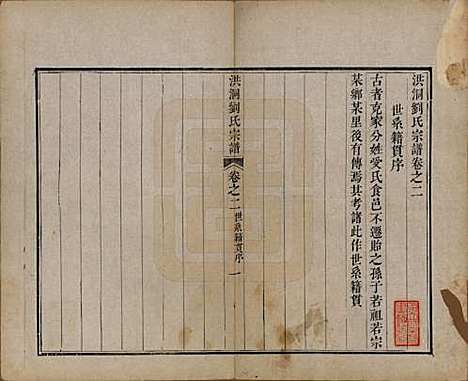 洪洞劉氏宗譜卷之二
世系籍貫序
古者克家分姓受氏食邑不遷貽之孫子若祖若宗
某鄉某里後有傳焉其考諸此作世系籍貫
洪洞劉氏宗譜
卷之二
世系籍貫序
一